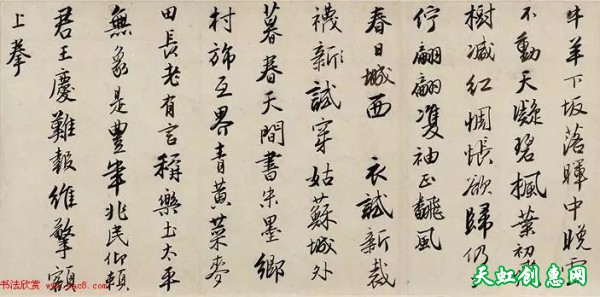 牛羊下坂落暉中晚雲
不動天凝碧楓葉初
樹減紅惆悵欲歸仍
佇翩翩雙袖正飜風
春日城西 衣試新裁
襪新試穿姑蘇城外
暮春天間書朱墨鄉
村旆互界青黃菜麥
田長老有言稱樂土太平
無象是豐年兆民仰賴
君王慶難報維擎額
上拳
书法欣赏
天虹创惠网